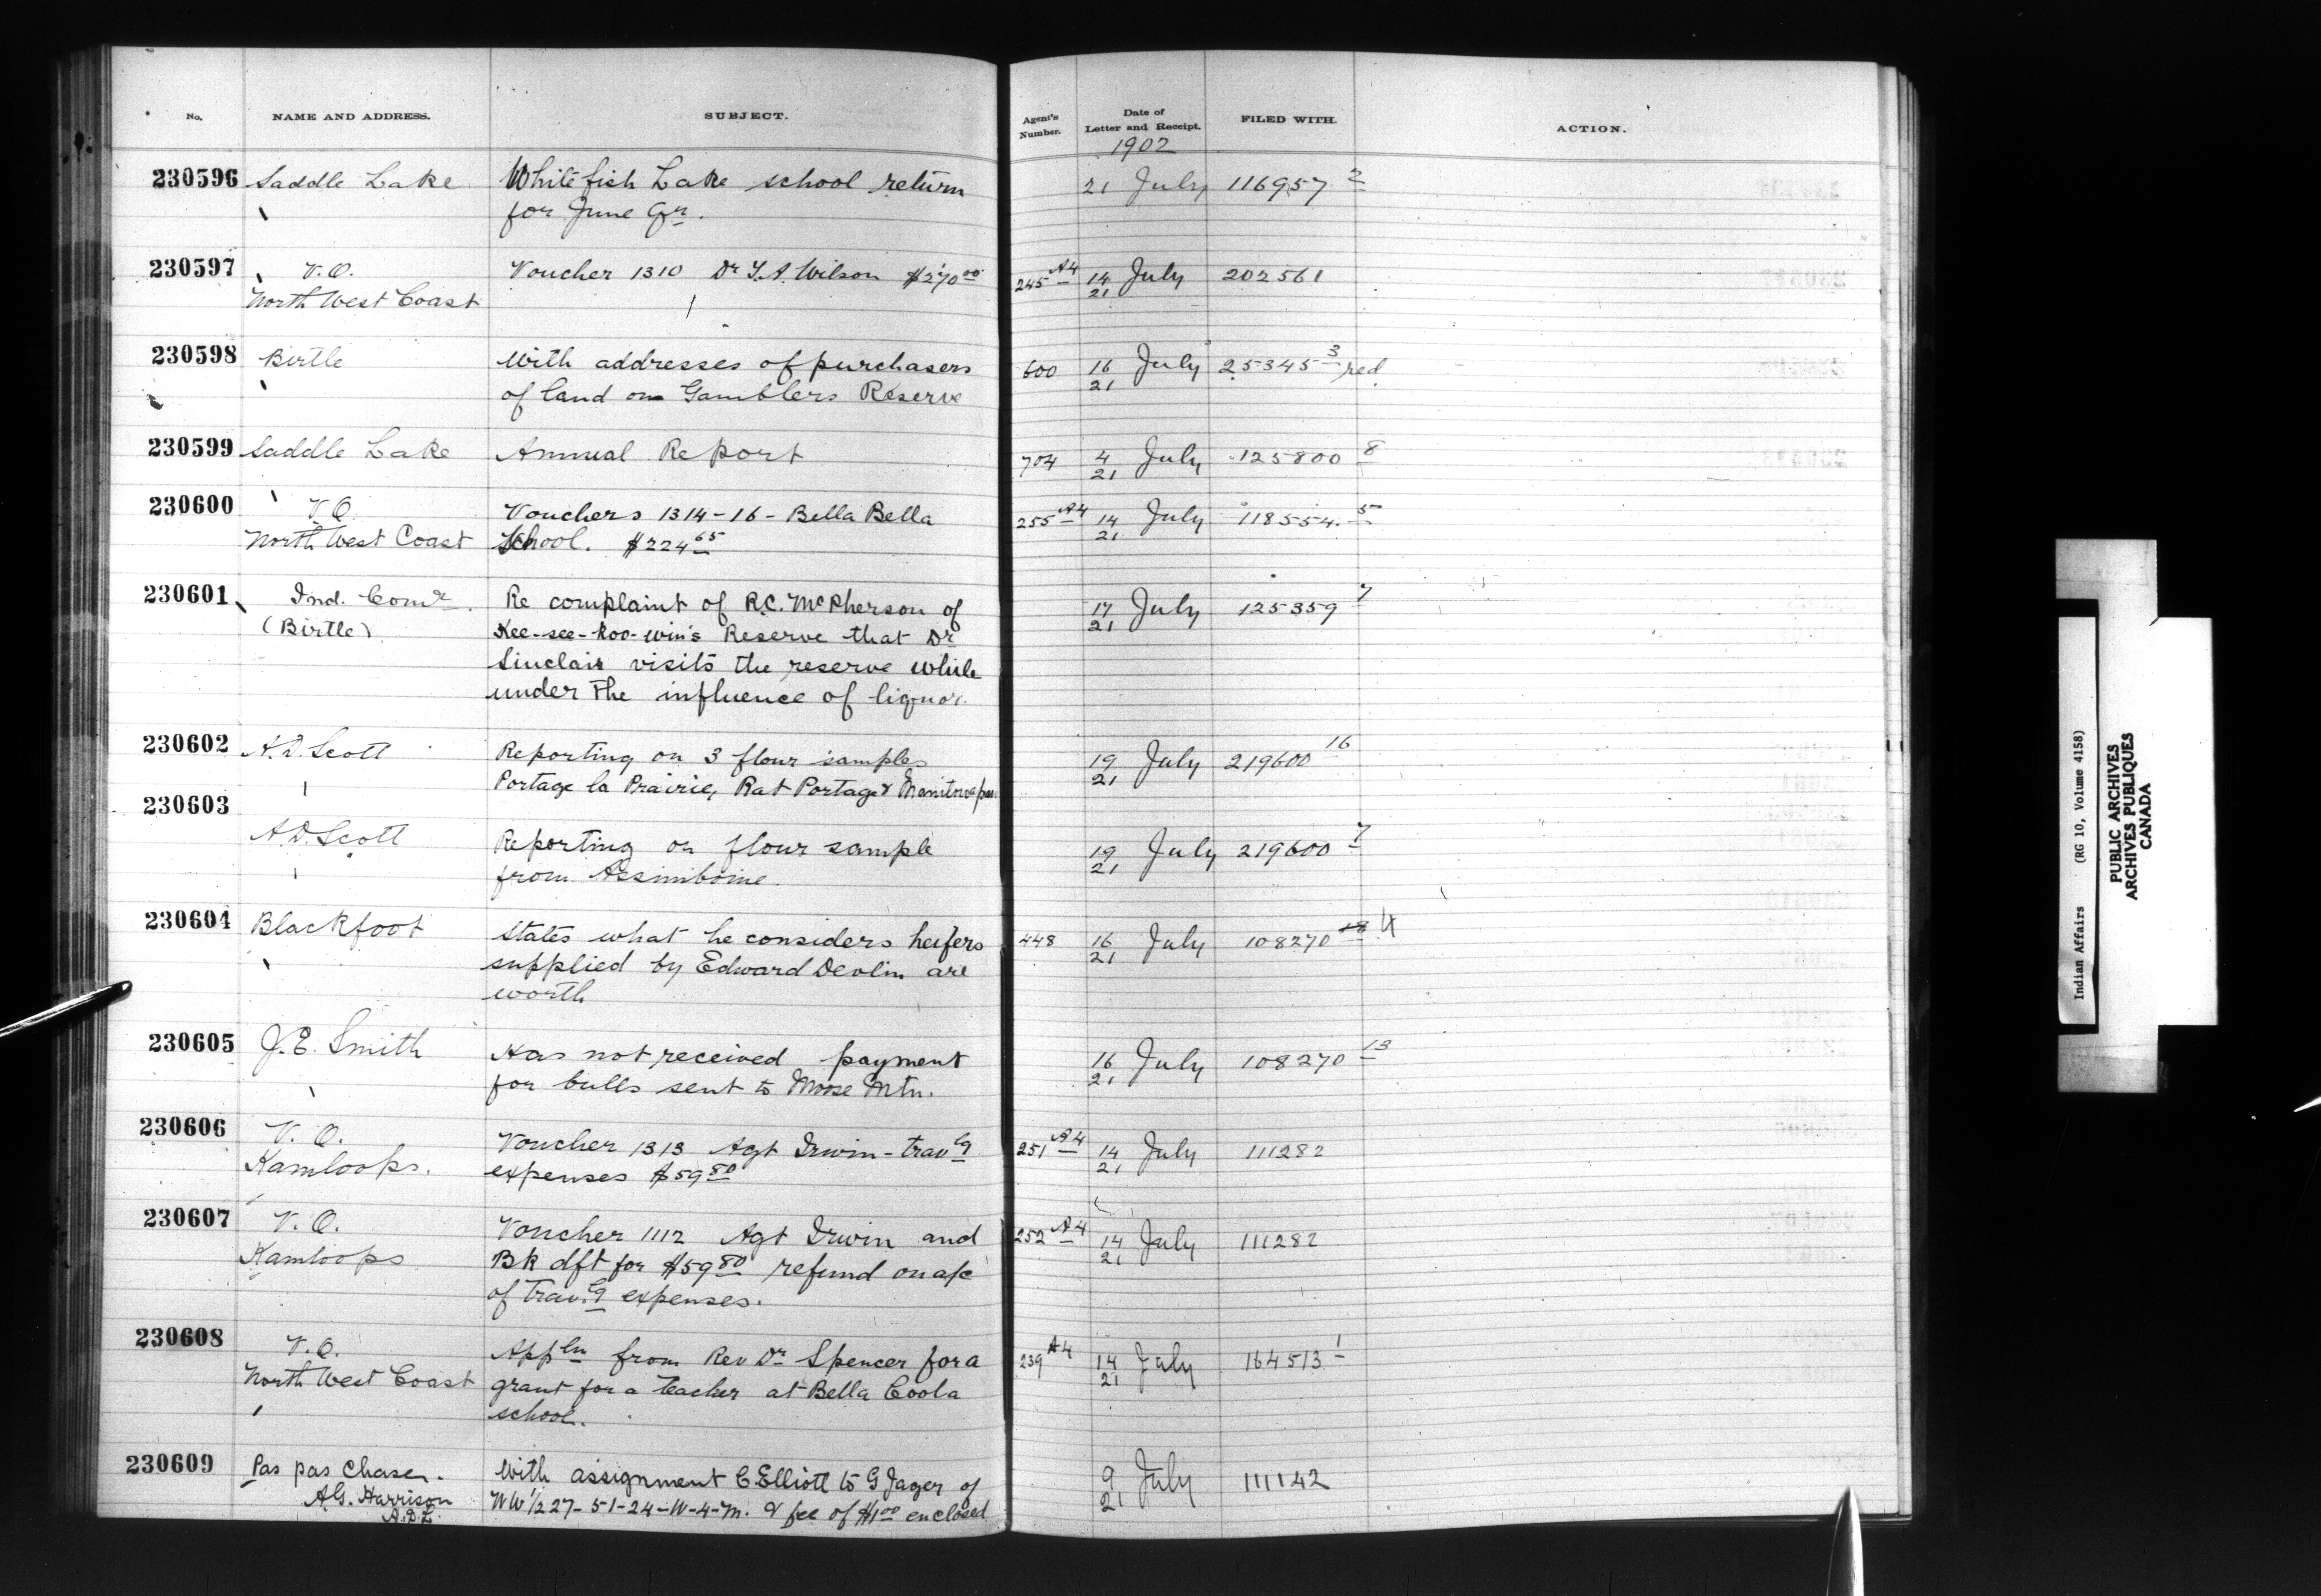 No. NAME AND ADDRESS. SUBJECT. Agent's Number. Date of Letter and Receipt. FILED WITH. ACTION.
1902
230596 Saddle Lake Whitefish Lake school return 21 July 116957 2
for June Qr.
230597 V.O. Voucher 1310 Dr J.A. Wilson $270 00 245 A4 14 July 202561
North West Coast 21
230598 Birtle With addresses of purchasers 600 16 July 25345 3 red
of land on Gamblers Reserve 21
230599 Saddle Lake Annual Report 704 4 July 125800 8
21
230600 V.O. Vouchers 1314-16- Bella Bella 255 A4 14 July 118554. 5
North West Coast School. $224 65 21
230601 Ind. Comr. Re complaint of R.C. McPherson of 17 July 125359 7
(Birtle) Kee-see-koo-win's Reserve that Dr 21
Sinclair visits the reserve while
under the influence of liquor.
230602 A.D. Scott Reporting on 3 flour samples 19 July 219600 16
Portage la Prairie, Rat Portage & Manitowapau 21
230603
A.D. Scott Reporting on flour sample 19 July 219600 7
from Assiniboine. 21
230604 Blackfoot States what he considers heifers 448 16 July 108270 18 4
supplied by Edward Devlin are 21
worth
230605 J.E. Smith Has not received payment 16 July 108270 13
for bulls sent to Moose Mtn. 21
230606 V.O. Voucher 1313 Agt Irwin - travlg 251 A4 14 July 111282
Kamloops. expenses $59 80 21
230607 V.O. Voucher 1112 Agt Irwin and 252 A4 14 July 111282
Kamloops Bk dft for $59 80 refund on a/c 21
of travlg expenses.
230608 V.O. Appln from Rev Dr Spencer for a 239 A4 14 July 164513 1
North West Coast grant for a teacher at Bella Coola 21
school.
230609 Pas pas Chase. With assignment C. Elliott to G Jager of 9 July 111142
A.G. Harrison NW ½ 27-51-24-W-4-M. & fee of $1 00 enclosed 21
A.D.L.
Indian Affairs (RG 10, Volume 4158)
PUBLIC ARCHIVES
ARCHIVES PUBLIQUES
CANADA